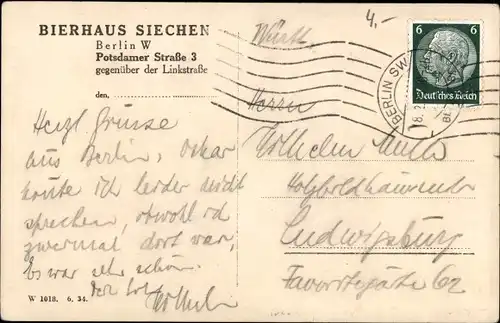 BIERHAUS SIECHEN
Berlin W
Potsdamer Straße 3
gegenüber der Linkstraße
den,
4,-
6 6
Deutsches Reich
BERLIN SW
Württ.
Herrn
Wilhelm
Ludwigsburg
Favoritegäste 62
Herzl Grüsse
aus Berlin, Oskar
konte ich leider nicht
sprechen, obwohl ich
zweimal dort war,
Es war sehr schön.
Wilhelm
W 1018. 6. 34.